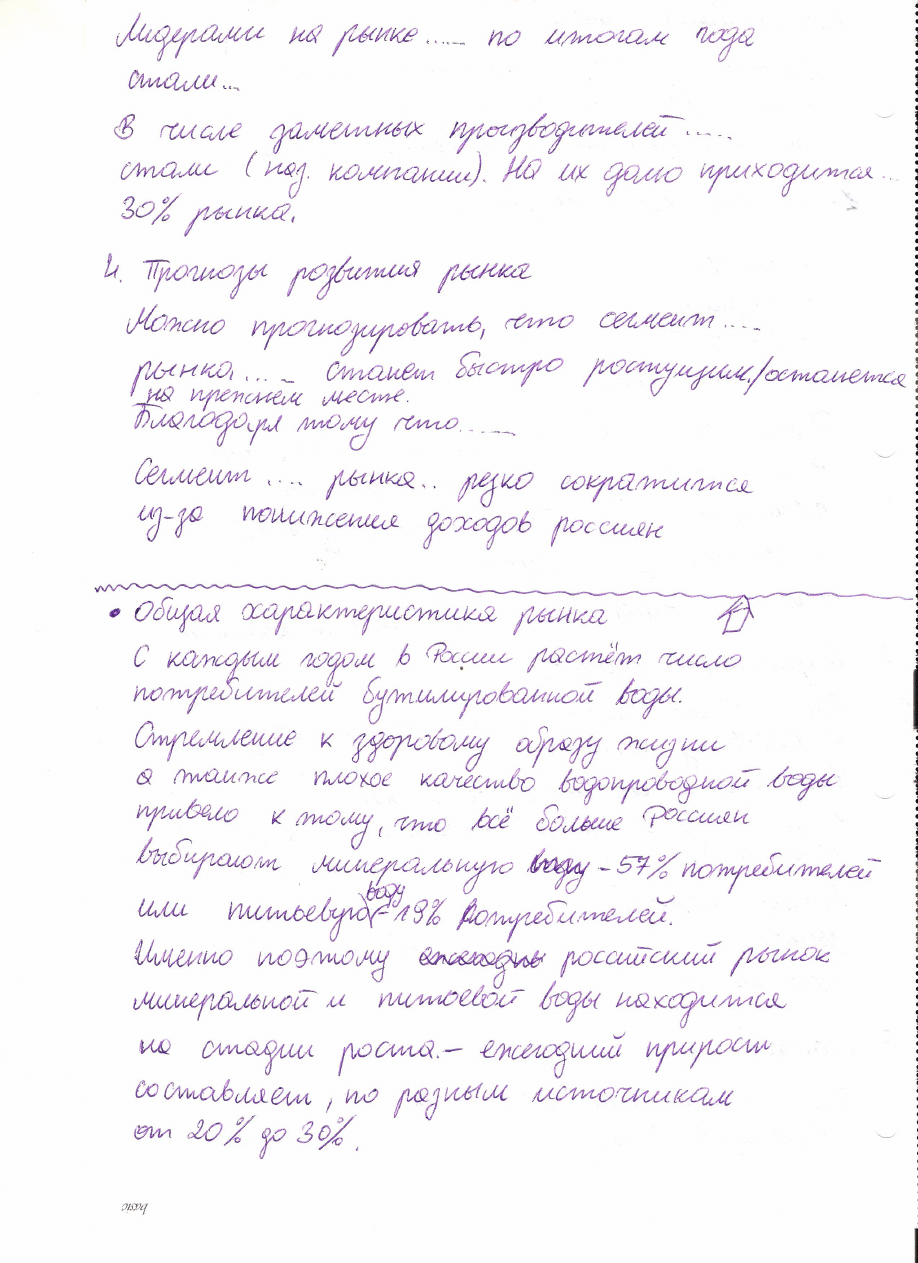 Лидерами на рынке ..... по итогам года
стали...
В числе заметных производителей .....
стали (наз. компании). На их долю приходится...
30% рынка.
4. Прогнозы розвития рынка
Можно прогнозировать, что сегмент ....
рынка.... станет быстро ростущим./останется
на прежнем месте.
Благодаря тому что.....
Сегмент .... рынка.. резко сократится
из-за понижения доходов россиян
• Общая характеристика рынка
С каждым годом в России растёт число
потребителей бутилированной воды.
Стремление к здоровому образу жизни
а также плохое качество водопроводной воды
привело к тому, что всё больше Россиян
выбирают минеральную воду - 57% потребителей
или питьевую воду - 19% потребителей.
Именно поэтому российский рынок
минеральной и питьевой воды находится
на стадии роста. - ежегодний прирост
составляет, по разным источникам
от 20% до 30%.